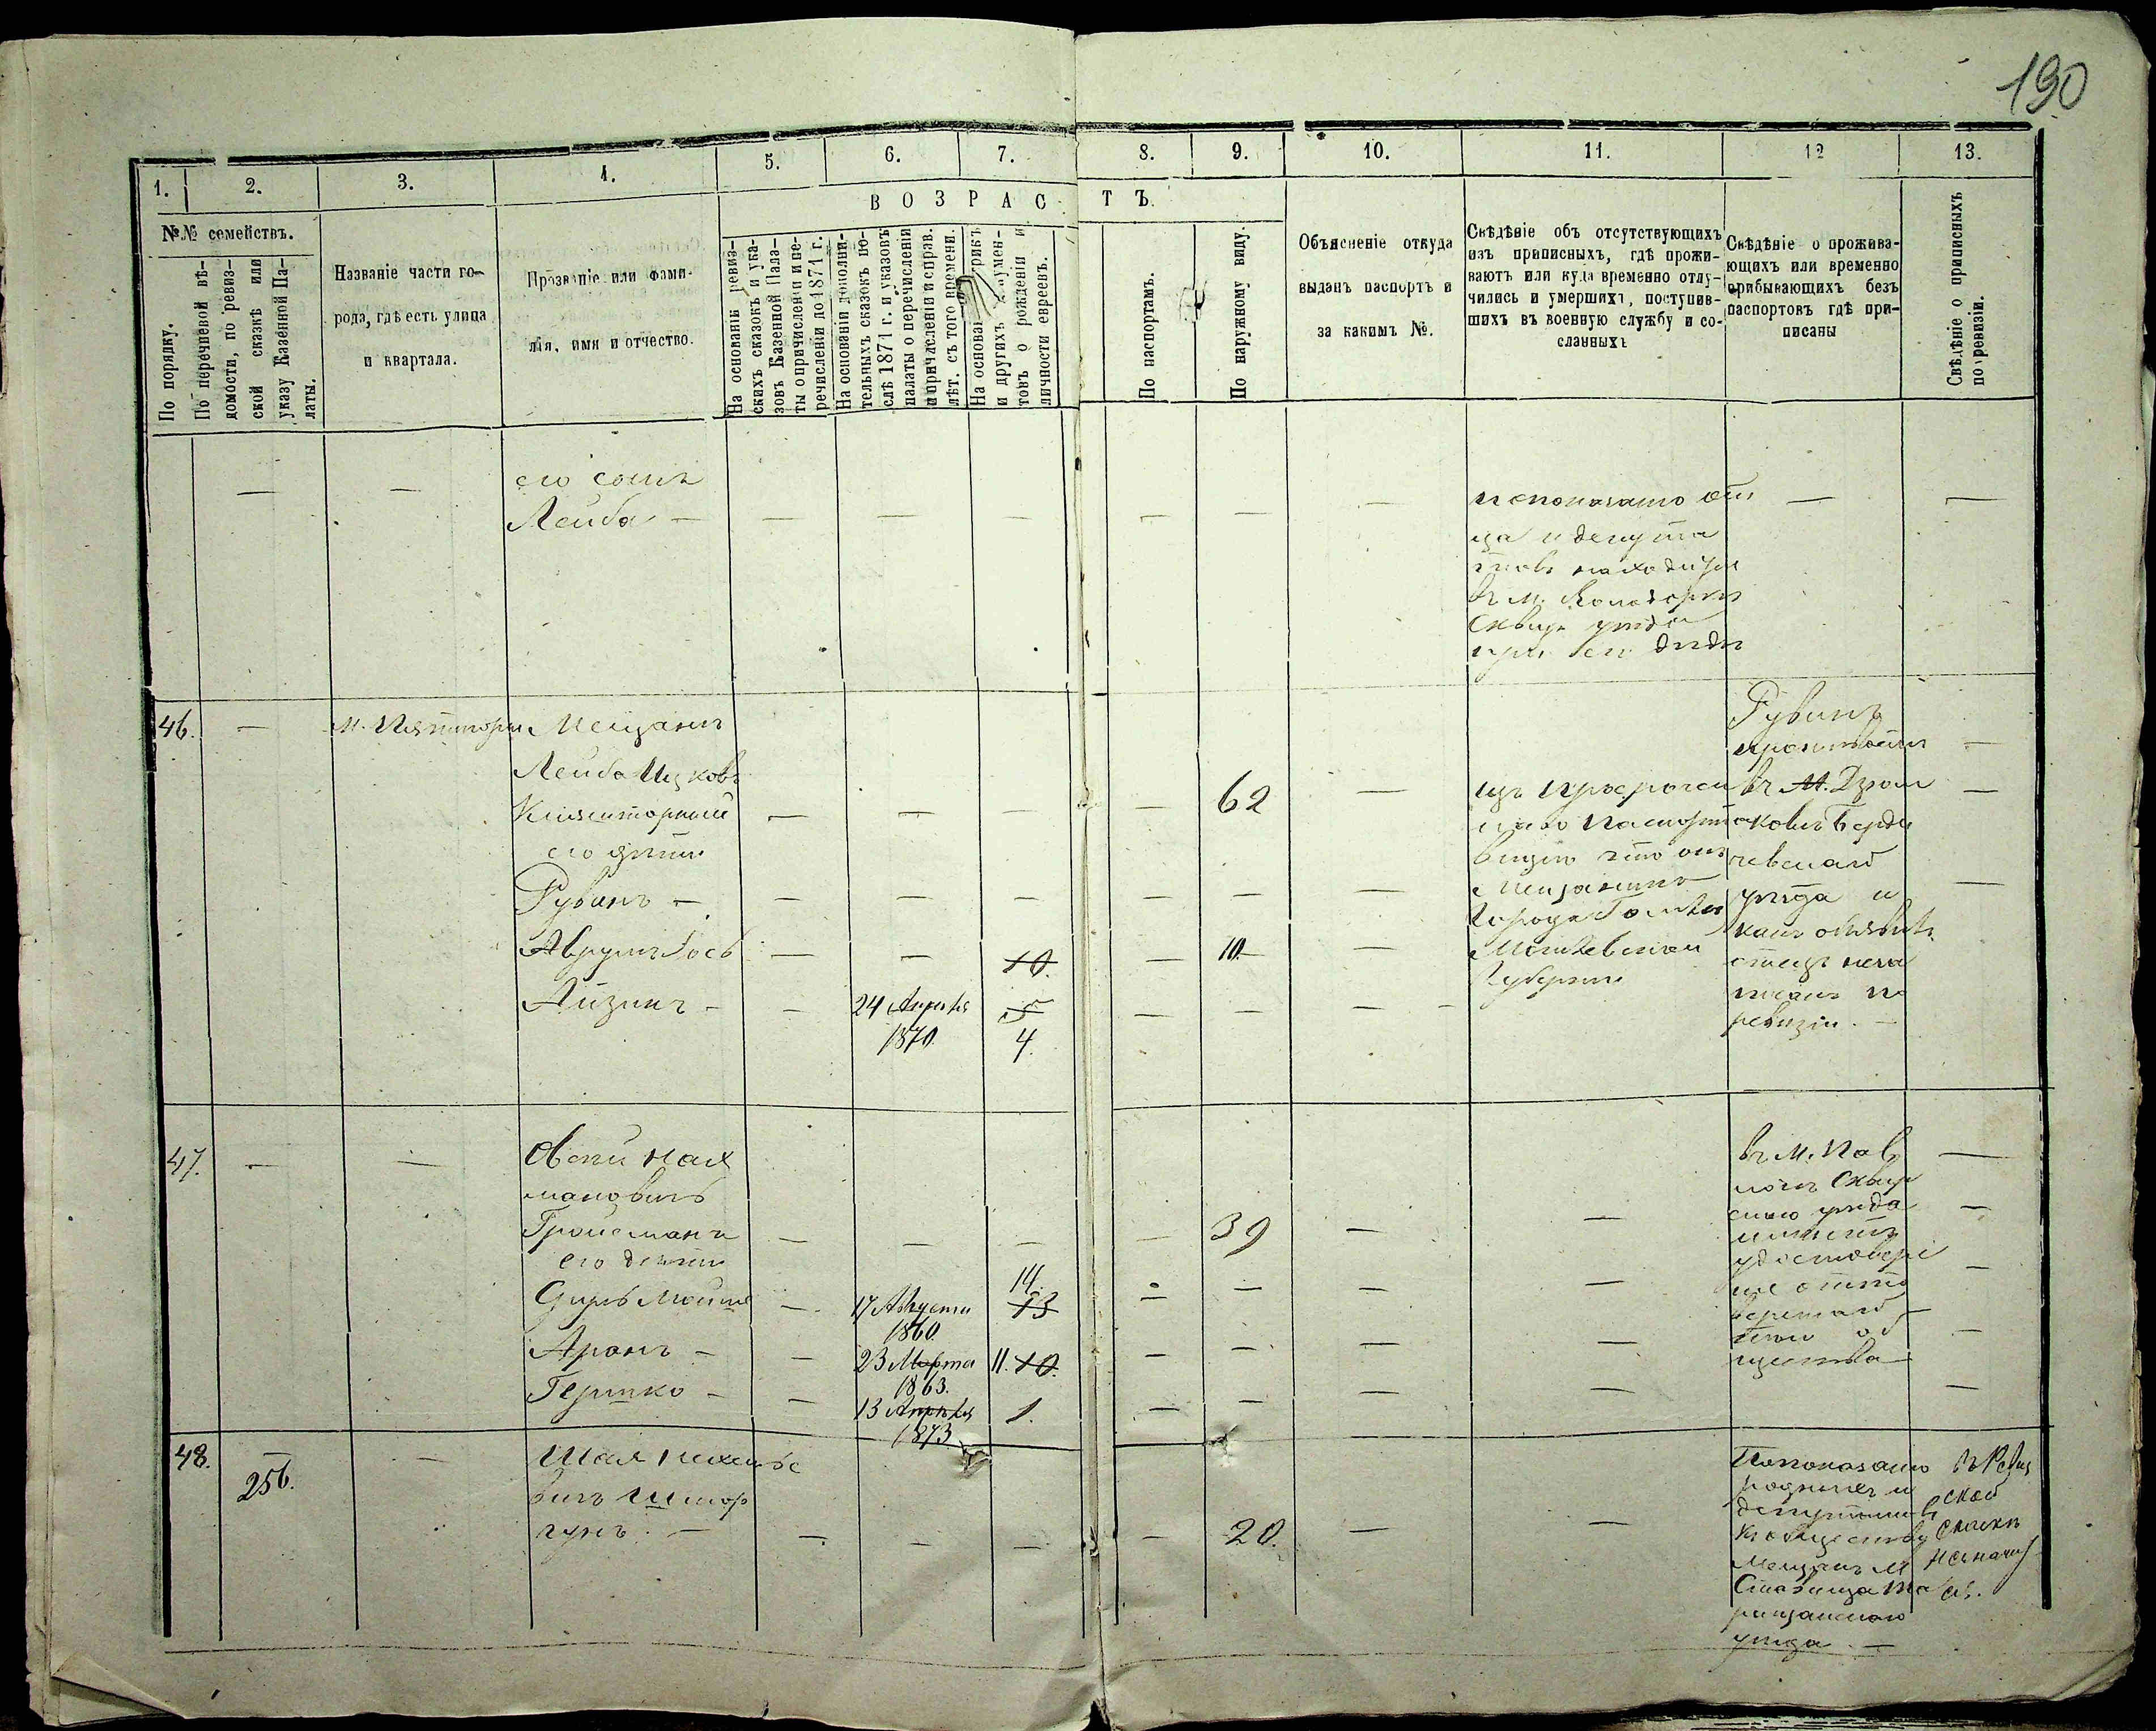 190
1. 2. 3. 4. 5. 6. 7. 8. 9. 10. 11. 12 13.
ВОЗРАСТЪ.
№№ семействъ.
По порядку.
По перечневой вѣ-
домости, по ревиз-
ской сказкѣ или
указу Казенной Па-
латы.
Названіе части го-
рода, гдѣ есть улица
и квартала.
Прозваніе или фами-
лія, имя и отчество.
На основаніи ревиз-
скихъ сказокъ и ука-
зовъ Казенной Пала-
ты о причисленіи и пе-
речисленіи до 1871 г.
На основаніи дополни-
тельныхъ сказокъ по-
слѣ 1871 г. и указовъ
палаты о перечисленіи
и причисленіи и справ.
лѣт. съ того времени.
На основаніи метрикъ
и другихъ докумен-
товъ о рожденіи и
личности евреевъ.
По паспортамъ.
По наружному виду.
Объясненіе откуда
выданъ паспортъ и
за какимъ №.
Свѣдѣніе объ отсутствующихъ
изъ приписныхъ, гдѣ прожи-
ваютъ или куда временно отлу-
чились и умершихъ, поступив-
шихъ въ военную службу и со-
сланныхъ
Свѣдѣніе о прожива-
ющихъ или временно
прибывающихъ безъ
паспортовъ гдѣ при-
писаны
Свѣдѣніе о приписныхъ
по ревизіи.
его сынъ
Лейба —
по показанію от
ца и депута
товъ находится
въ м.
Сквир. уѣзда
при его дѣдѣ
46. — м. Пятигоры Мещанинъ
Лейба Ицковъ
его дѣти
Рувинъ —
Аврумъ Іось
Айзикъ —
24 Апрѣля
1870
10.
5
4.
62
10.
изъ просрочен
наго паспорта
видно что онъ
Мещанинъ
города Гомля
Могилевской
Губерніи
Рувинъ
проживаетъ
въ м. Дзюн
ковѣ Берди
чевскаго
уѣзда и
какъ объявилъ
отецъ неза
писанъ по
ревизіи. —
47. — — Овсій Нах
мановичъ
Гройсманъ
его дѣти
Сруль Мойше
Аронъ —
Гершко —
17 Августа
1860
14.
13
23 Марта
1863.
11. 10.
13 Апрѣля
1873
1.
39
въ м. Пав
лочѣ Сквир
скаго уѣзда
имѣетъ
удостовѣре
ніе отъ
щества
48. 256. — Шая
вичъ
20.
По показанію
родныхъ и
депутатовъ
къ обществу
Мещанъ м.
Ставища Та
ращанскаго
уѣзда —
въ Ревиз
ской
сказкѣ